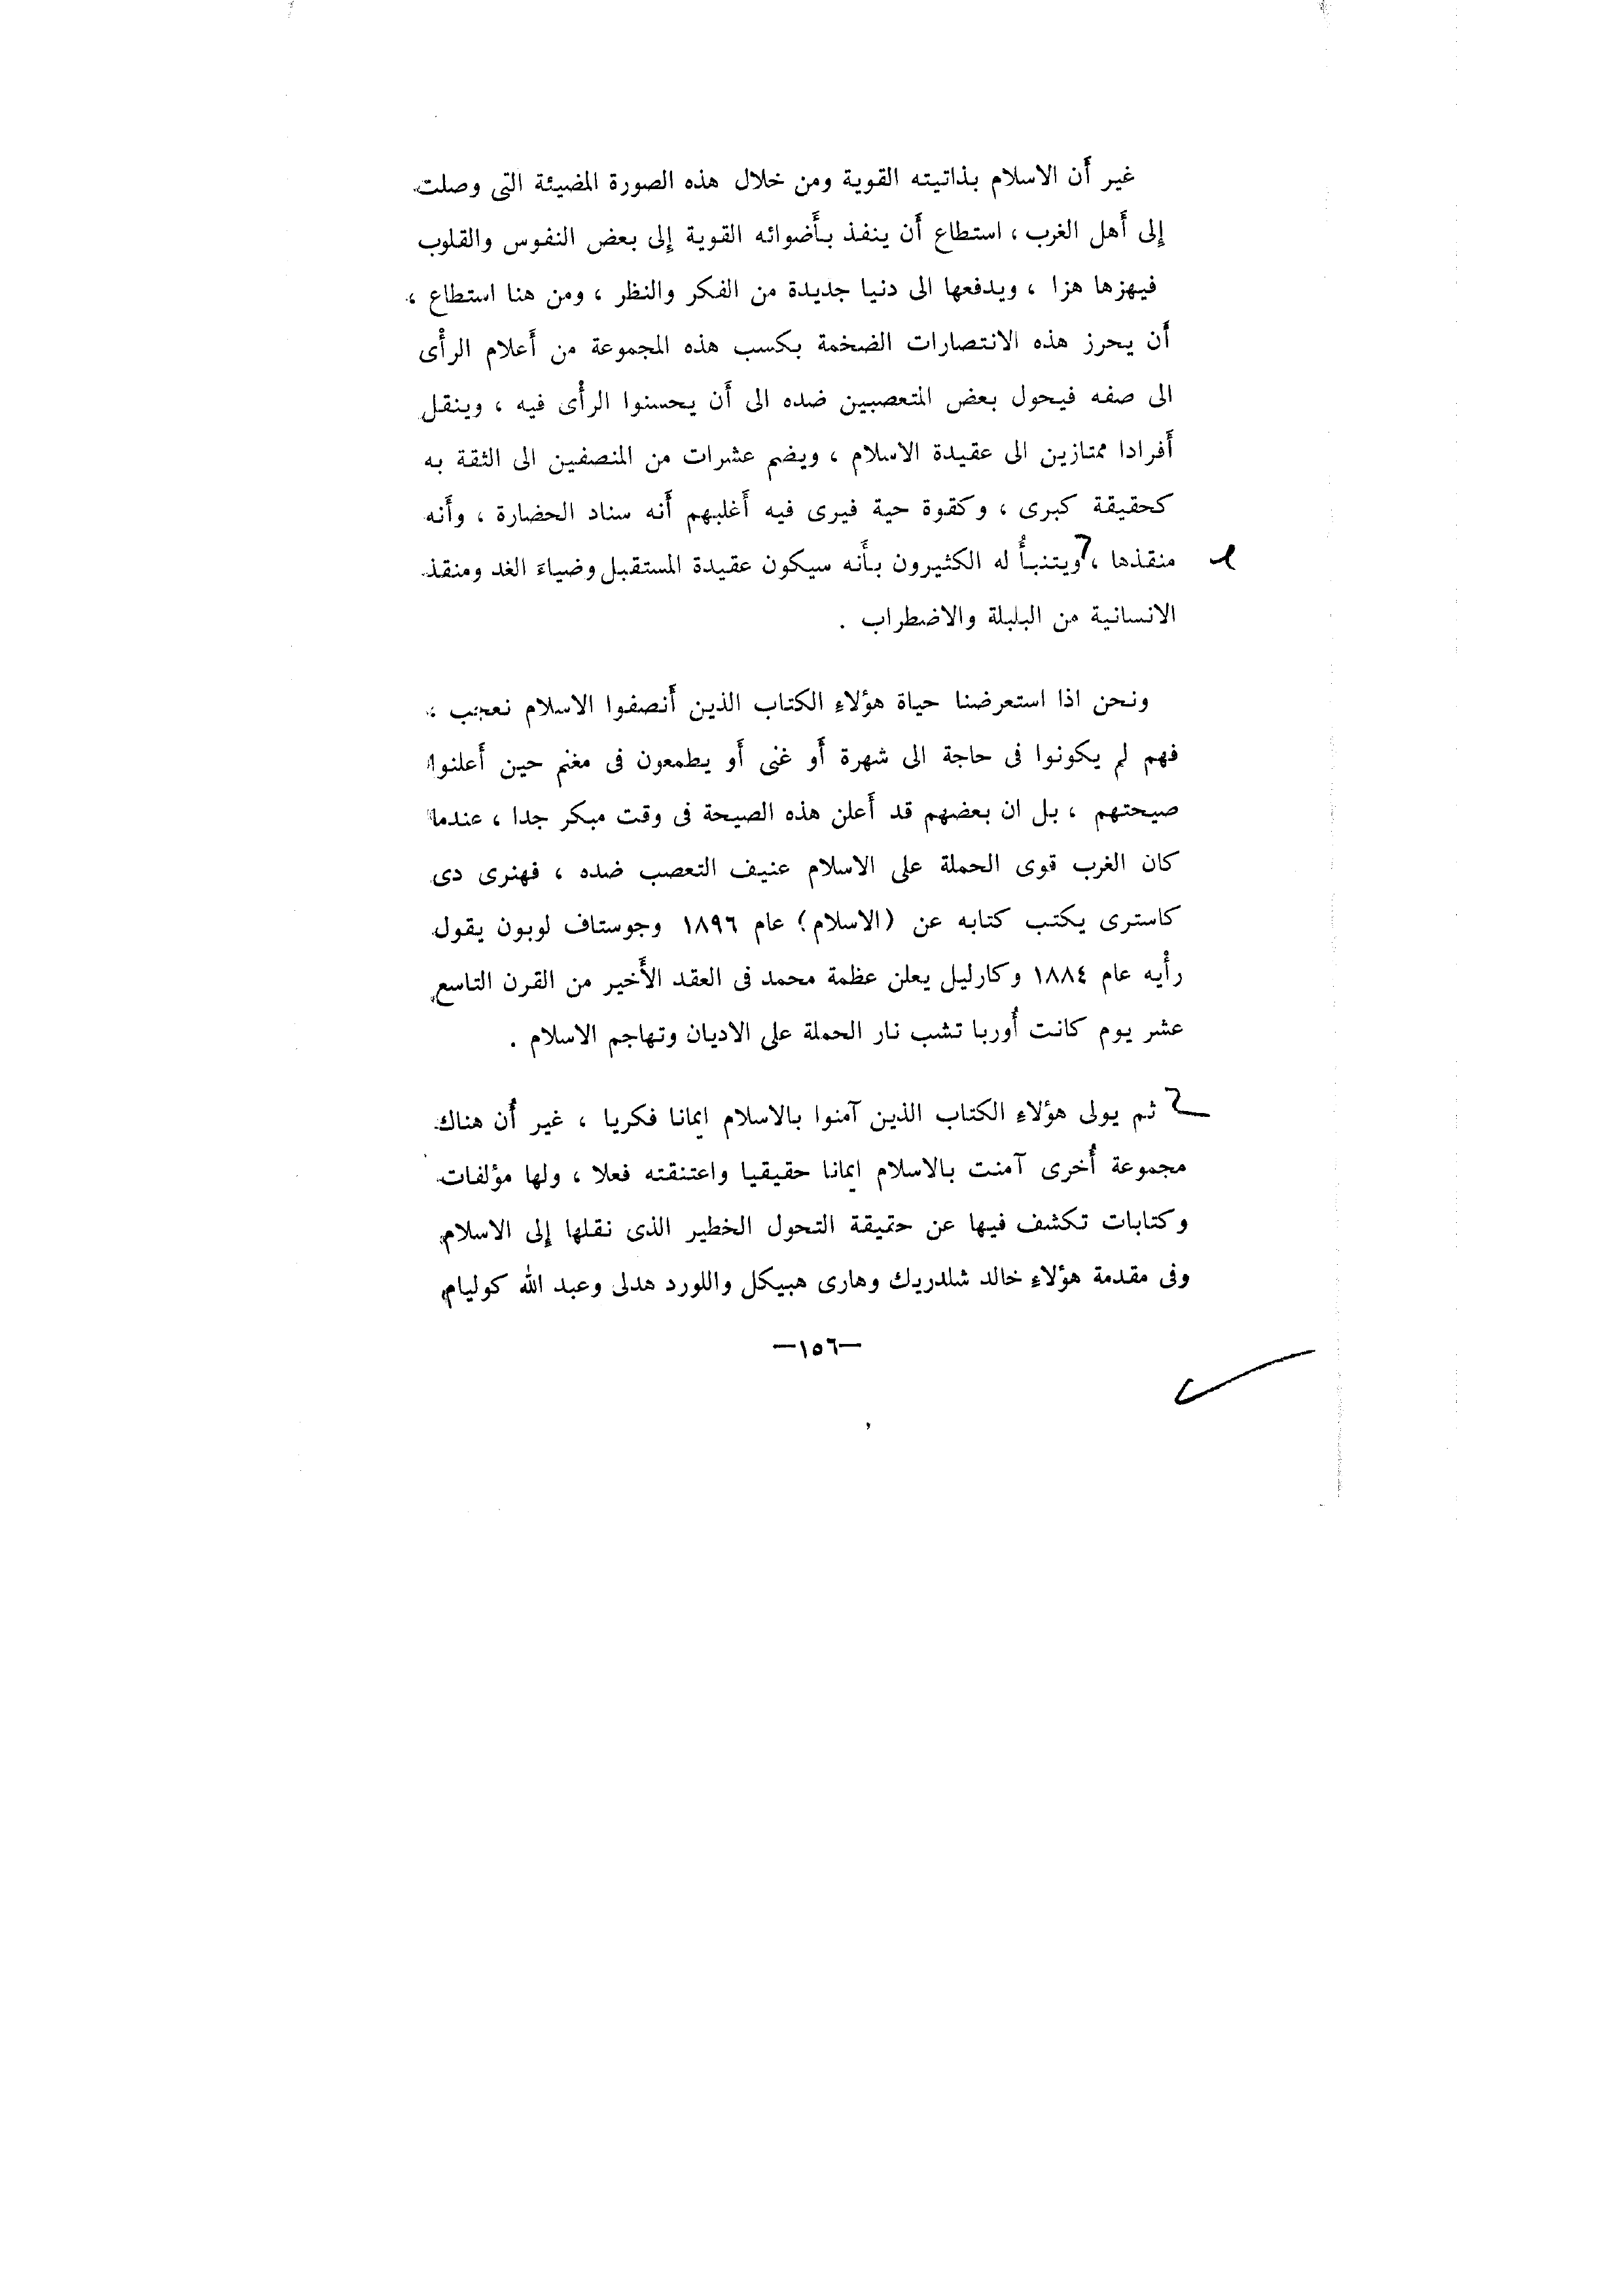 غير أَن الاسلام بذاتيته القوية ومن خلال هذه الصورة المضيئة التى وصلت
إلى أَهل الغرب ، استطاع أَن ينفذ بأَضوائه القوية إلى بعض النفوس والقلوب
فيهزها هزا ، ويدفعها الى دنيا جديدة من الفكر والنظر ، ومن هنا استطاع ،
أَن يحرز هذه الانتصارات الضخمة بكسب هذه المجموعة من أَعلام الرأْى
الى صفه فيحول بعض المتعصبين ضده الى أَن يحسنوا الرأْى فيه ، وينقل
أَفرادا ممتازين الى عقيدة الاسلام ، ويضم عشرات من المنصفين الى الثقة به
كحقيقة كبرى ، وكقوة حية فيرى فيه أَغلبهم أَنه سناد الحضارة ، وأَنه
منقذها ، ويتنبأُ له الكثيرون بأَنه سيكون عقيدة المستقبل وضياءَ الغد ومنقذ
الانسانية من البلبلة والاضطراب .
ونحن اذا استعرضنا حياة هؤلاءِ الكتاب الذين أَنصفوا الاسلام نعجب ،
فهم لم يكونوا فى حاجة الى شهرة أَو غنى أَو يطمعون فى مغنم حين أَعلنوا
صيحتهم ، بل ان بعضهم قد أَعلن هذه الصيحة فى وقت مبكر جدا ، عندما
كان الغرب قوى الحملة على الاسلام عنيف التعصب ضده ، فهنرى دى
كاسترى يكتب كتابه عن (الاسلام) عام ١٨٩٦ وجوستاف لوبون يقول
رأْيه عام ١٨٨٤ وكارليل يعلن عظمة محمد فى العقد الأَخير من القرن التاسع
عشر يوم كانت أُوربا تشب نار الحملة على الاديان وتهاجم الاسلام .
ثم يولى هؤلاءِ الكتاب الذين آمنوا بالاسلام ايمانا فكريا ، غير أَن هناك
مجموعة أُخرى آمنت بالاسلام ايمانا حقيقيا واعتنقته فعلا ، ولها مؤلفات
وكتابات تكشف فيها عن حقيقة التحول الخطير الذى نقلها إلى الاسلام
وفى مقدمة هؤلاءِ خالد شلدريك وهارى هبيكل واللورد هدلى وعبد الله كوليام
—١٥٦—